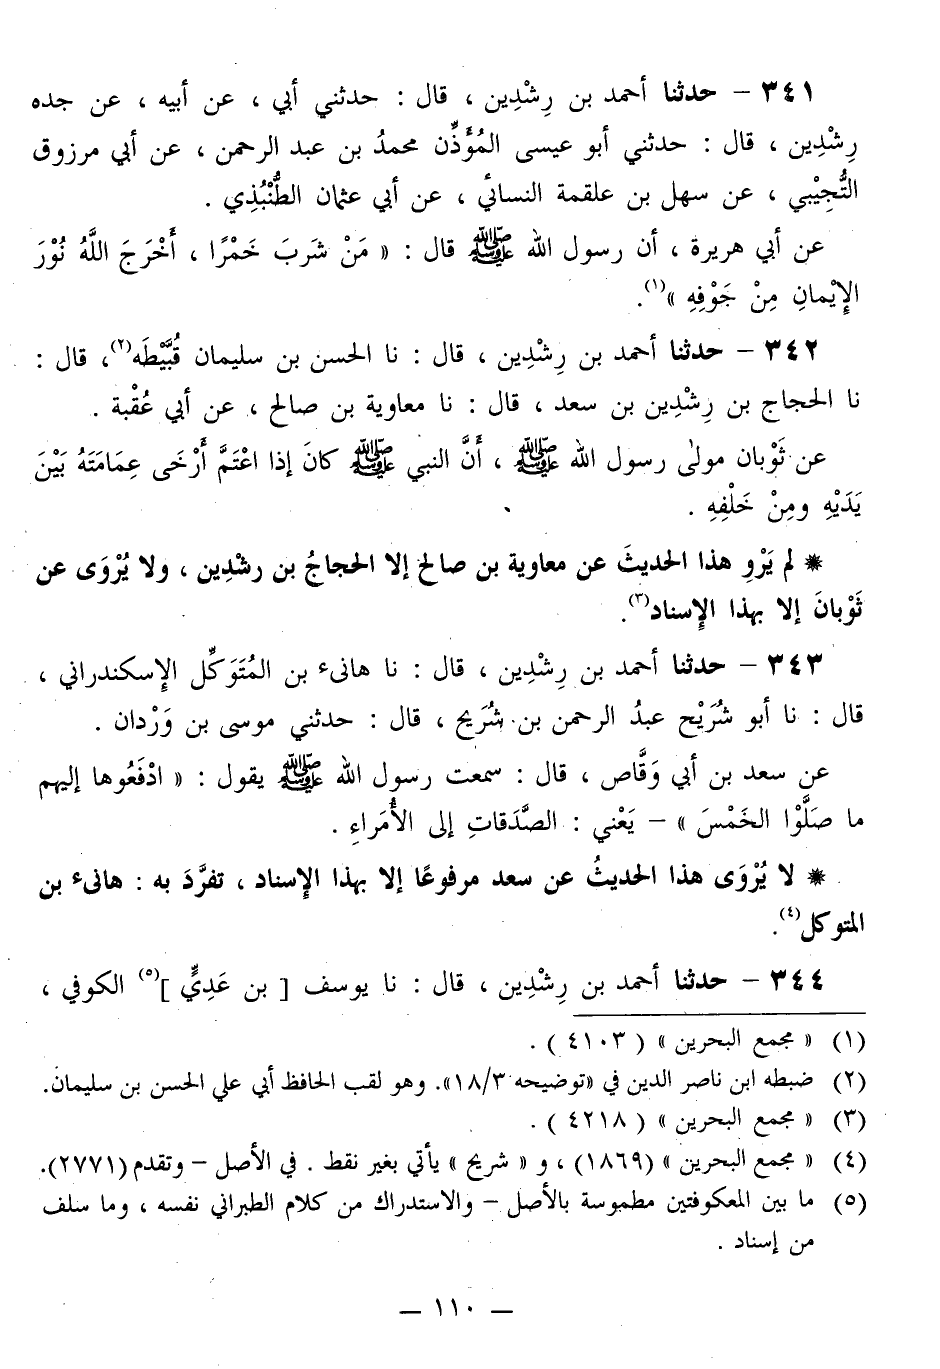 ٣٤١ – حدثنا أحمد بن رِشْدِين ، قال : حدثني أبي ، عن أبيه ، عن جده
رِشْدِين ، قال : حدثني أبو عيسى المُؤَذِّن محمدُ بن عبد الرحمن ، عن أبي مرزوق
التُّجِيْبي ، عن سهل بن علقمة النسائي ، عن أبي عثمان الطُّنْبُذِي .
عن أبي هريرة ، أن رسول الله ﷺ قال : « مَنْ شَرِبَ خَمْرًا ، أَخْرَجَ اللَّهُ نُوْرَ
الإِيْمانِ مِنْ جَوْفِهِ »(١).
٣٤٢ – حدثنا أحمد بن رِشْدِين ، قال : نا الحسن بن سليمان قُبَّيْطَه(٢)، قال :
نا الحجاج بن رِشْدِين بن سعد ، قال : نا معاوية بن صالح ، عن أبي عُقْبة .
عن ثَوْبان مولى رسول الله ﷺ ، أَنَّ النبي ﷺ كانَ إذا اعْتَمَّ أَرْخَى عِمَامَتَهُ بَيْنَ
يَدَيْهِ ومِنْ خَلْفِهِ .
* لم يَرْوِ هذا الحديثَ عن معاوية بن صالح إلا الحجاجُ بن رِشْدِين ، ولا يُرْوَى عن
ثَوْبانَ إلا بهذا الإِسناد(٣).
٣٤٣ – حدثنا أحمد بن رِشْدِين ، قال : نا هانىء بن المُتَوَكِّل الإِسكندراني ،
قال : نا أبو شُرَيْح عبدُ الرحمن بن شُرَيح ، قال : حدثني موسى بن وَرْدان .
عن سعد بن أبي وَقَّاص ، قال : سمعت رسول الله ﷺ يقول : « ادْفَعُوها إليهم
ما صَلَّوْا الخَمْسَ » – يَعْني : الصَّدَقاتِ إلى الأُمَراءِ .
* لا يُرْوَى هذا الحديثُ عن سعد مرفوعًا إلا بهذا الإِسناد ، تفرَّدَ به : هانىء بن
المتوكل(٤).
٣٤٤ – حدثنا أحمد بن رِشْدِين ، قال : نا يوسف [ بن عَدِيٍّ ](٥) الكوفي ،
(١) « مجمع البحرين » ( ٤١٠٣ ) .
(٢) ضبطه ابن ناصر الدين في «توضيحه ١٨/٣». وهو لقب الحافظ أبي علي الحسن بن سليمان.
(٣) « مجمع البحرين » ( ٤٢١٨ ) .
(٤) « مجمع البحرين » (١٨٦٩) ، و « شريح » يأتي بغير نقط . في الأصل – وتقدم (٢٧٧١).
(٥) ما بين المعكوفتين مطموسة بالأصل – والاستدراك من كلام الطبراني نفسه ، وما سلف
من إسناد .
– ١١٠ –